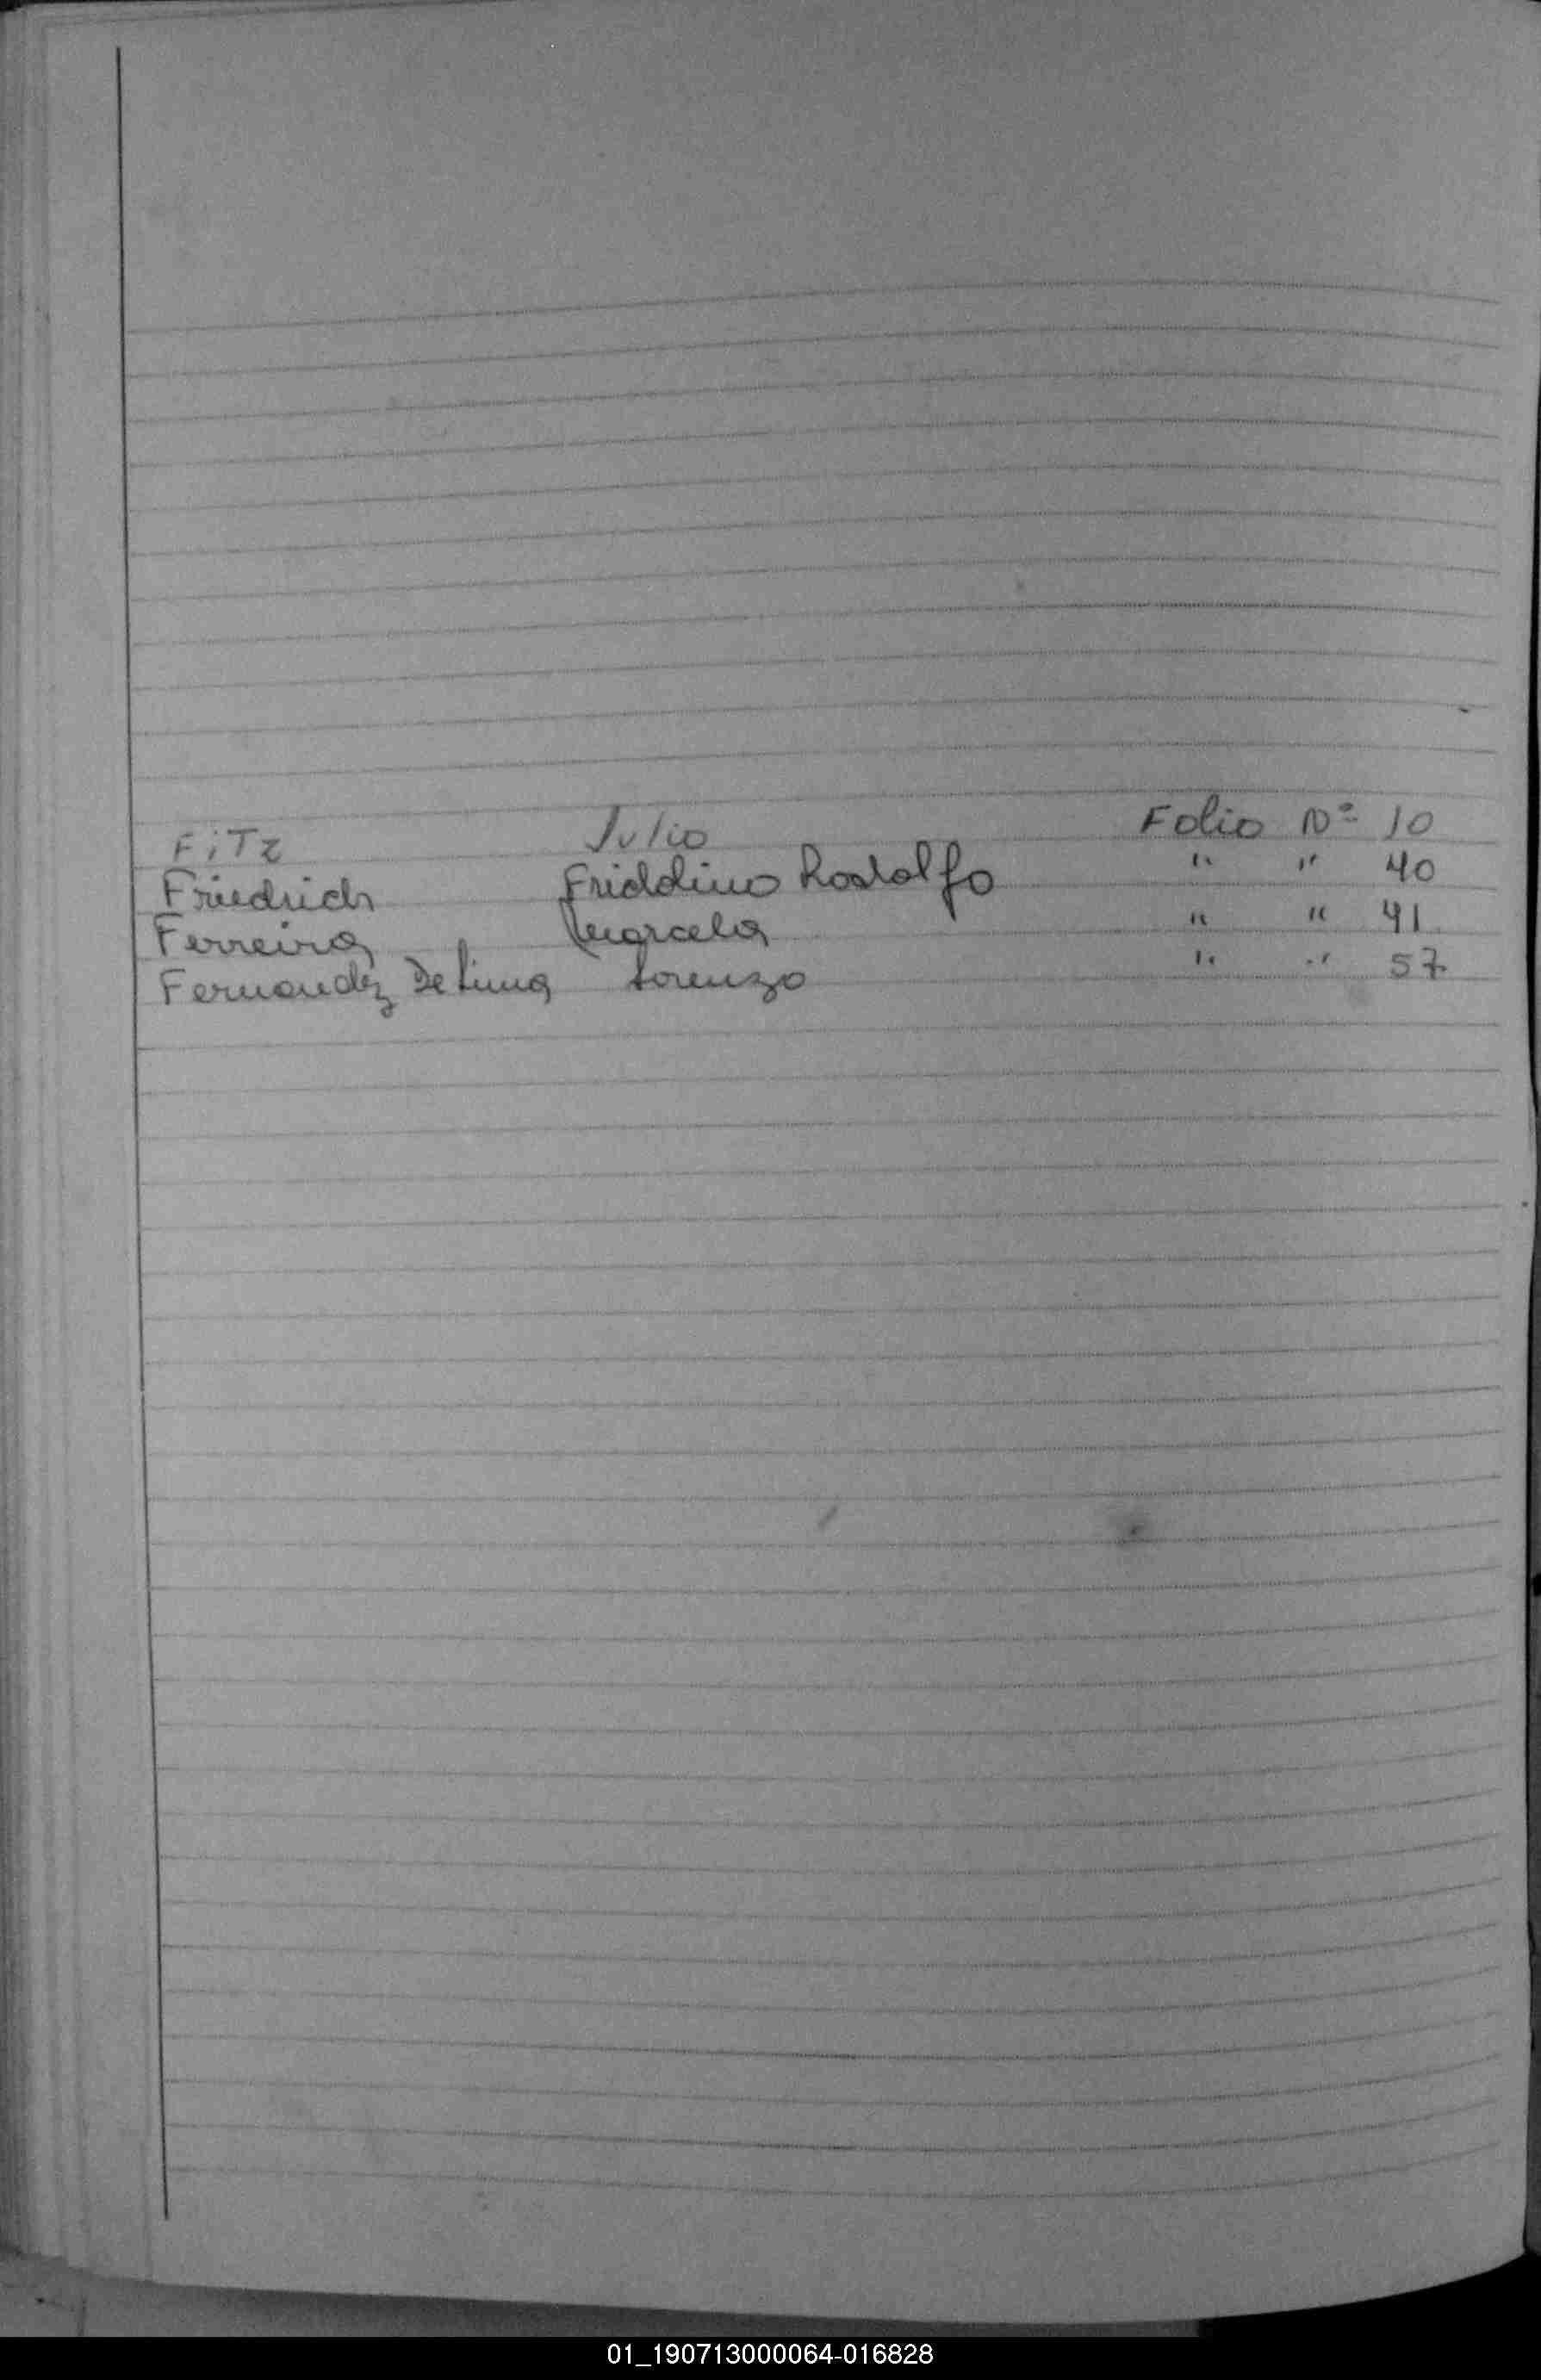 FiTz Julio Folio Nº 10
Friedrich Fridolino Rodolfo " " 40
Ferreira Marcela " " 41
Fernandez De Lima Lorenzo " " 57
01_190713000064-016828